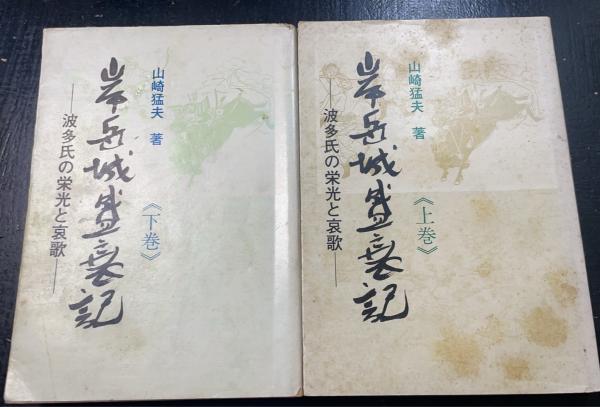 山崎猛夫 著
岸岳城盛衰記
―波多氏の栄光と哀歌―
《下巻》
山崎猛夫 著
岸岳城盛衰記
―波多氏の栄光と哀歌―
《上巻》